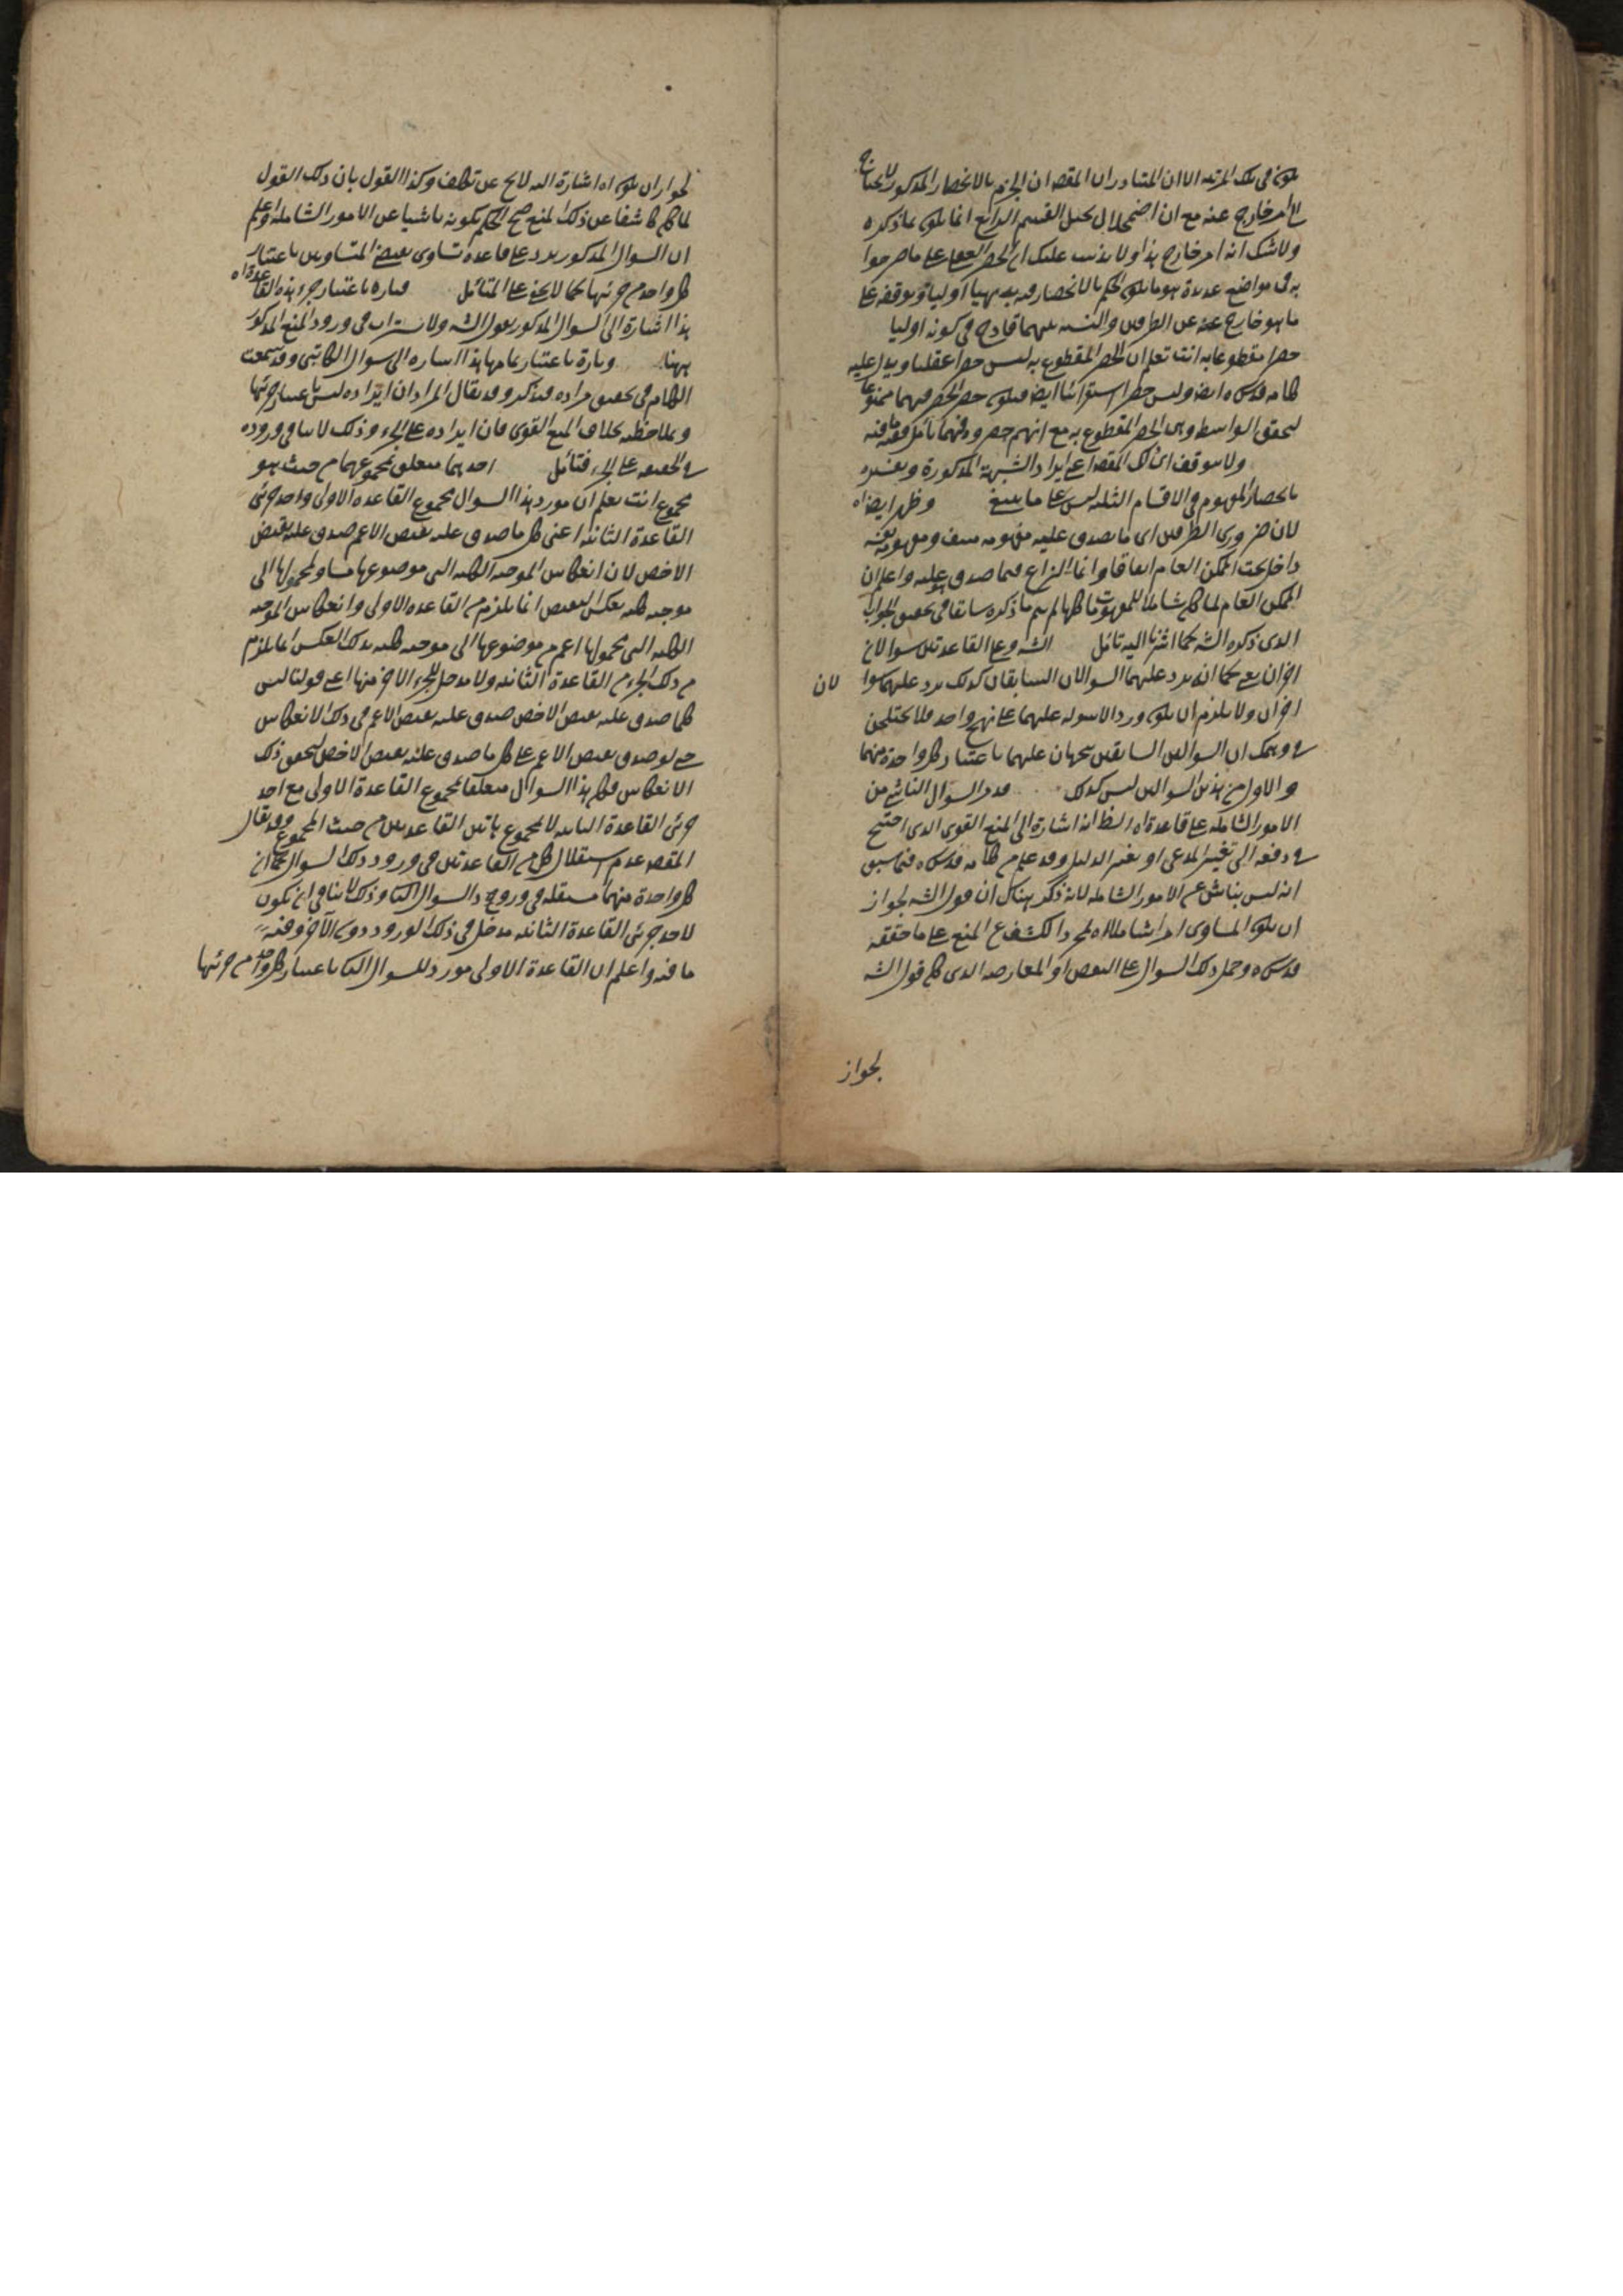 يكون في تلك المرتبة الا ان المتبادر ان المقصد ان الجزم بالانحصار المذكور لا يحتاج
الى امر خارج عنه مع ان اضمحلال القسم الرابع انما يكون بما ذكره
ولا شك انه امر خارج هذا ولا يذهب عليك ان الحصر العقلي على ما صرحوا
به في مواضع عديدة هو ما يكون الحكم بالانحصار فيه بديهيا اوليا وتوقفه على
ما هو خارج عنه عن الطرفين والنسبة بينهما قادح في كونه اوليا
حصرا مقطوعا به انت تعلم ان الحصر المقطوع به ليس حصرا عقليا ويدل عليه
كلامه قدس سره ايضا وليس حصرا استقرائيا ايضا فيكون حصر الحصر فيهما ممنوعا
لتحقق الواسطة وهي الحصر المقطوع به مع انهم حصروه فيهما تأمل ففيه ما فيه
ولا يتوقف اي ذلك المقصد على ايراد الشبهة المذكورة
بانحصار المفهوم في الاقسام الثلثة ليس على ما ينبغي وظهر ايضا اه
لان ضروري الطرفين اي ما يصدق عليه مفهومه
داخل تحت الممكن العام اتفاقا وانما النزاع فيما صدق عليه واعلم ان
الممكن العام لما كان شاملا للمفهومات كلها لم يتم ما ذكره سابقا في تحقيق الجواب
الذي ذكره الشه كما اشرنا اليه تأمل الشه وعلى القاعدتين سؤالان
اخران يعني كما انه يرد عليهما السؤالان السابقان كذلك يرد عليهما سوا لان
اخران ولا يلزم ان يكون ورد الاسولة عليهما على نهج واحد فلا يختلجن
في وهمك ان السؤالين السابقين يتجهان عليهما باعتبار كل واحدة منهما
والاول من هذين السؤالين ليس كذلك السؤال الناشي من
الامور الشاملة على قاعدة اه الظ انه اشارة الى المنع القوي الذي احتيج
في دفعه الى تغيير المدعى او تغيير الدليل وقد علم من كلامه قدس سره فيما سبق
انه ليس بناش عن الامور الشاملة لانه ذكر هناك ان قول الشه لجواز
ان يكون المساوي امرا شاملا اه لمجرد الكشف عن المنع على ما حققه
قدس سره وحمل ذلك السؤال على النقض او المعارضة الذي كان قول الشه
لجواز
لجواز ان يكون اه اشارة اليه لا يخ عن تكلف وكذا القول بان ذلك القول
لما كان كاشفا عن ذلك المنع صح الحكم بكونه ناشيا عن الامور الشاملة واعلم
ان السؤال المذكور يرد على قاعدة تساوي نقيضي المتساويين باعتبار
كل واحد من جزئيها كما لا يخفى على المتأمل فتارة باعتبار جزء هذه القاعدة اه
هذا اشارة الى السؤال المذكور بقول الشه ولا يستراب في ورود المنع المذكور
ههنا وتارة باعتبار تمامها هذا اشارة الى سؤال الكاتبي وقد سمعت
الكلام في تحقيق مراده فتذكر وقد يقال المراد ان ايراده ليس باعتبار جزئها
وملاحظته بخلاف المنع القوي فان ايراده على الجزء وذلك لا ينافي وروده
في الحقيقة على الجزء فتأمل احدهما متعلق بمجموعهما من حيث هو
مجموع انت تعلم ان مورد هذا السؤال مجموع القاعدة الاولى واحد جزئي
القاعدة الثانية اعني كل ما صدق عليه نقيض الاعم صدق عليه نقيض
الاخص لان انعكاس الموجبة الكلية التي موضوعها مساو لمحمولها الى
موجبة كلية بعكس النقيض انما يلزم من القاعدة الاولى وانعكاس الموجبة
الكلية التي محمولها اعم من موضوعها الى موجبة كلية بذلك العكس انما يلزم
من ذلك الجزء من القاعدة الثانية ولا مدخل للجزء الاخر منها اعني قولنا ليس
كلما صدق عليه نقيض الاخص صدق عليه نقيض الاعم في ذلك الانعكاس
حتى لو صدق نقيض الاعم على كل ما صدق عليه نقيض الاخص لتحقق ذلك
الانعكاس فكان هذا السؤال متعلقا بمجموع القاعدة الاولى مع احد
جزئي القاعدة الثانية لا بمجموع هاتين القاعدتين من حيث المجموع وقد يقال
المقصد عدم استقلال كل من القاعدتين في ورود ذلك السؤال كما ان
كل واحدة منهما مستقلة في ورود السؤال وذلك لا ينافي ان يكون
لاحد جزئي القاعدة الثانية مدخل في ذلك الورود دون الآخر وفيه
ما فيه واعلم ان القاعدة الاولى مورد للسؤال باعتبار كل واحد من جزئيها